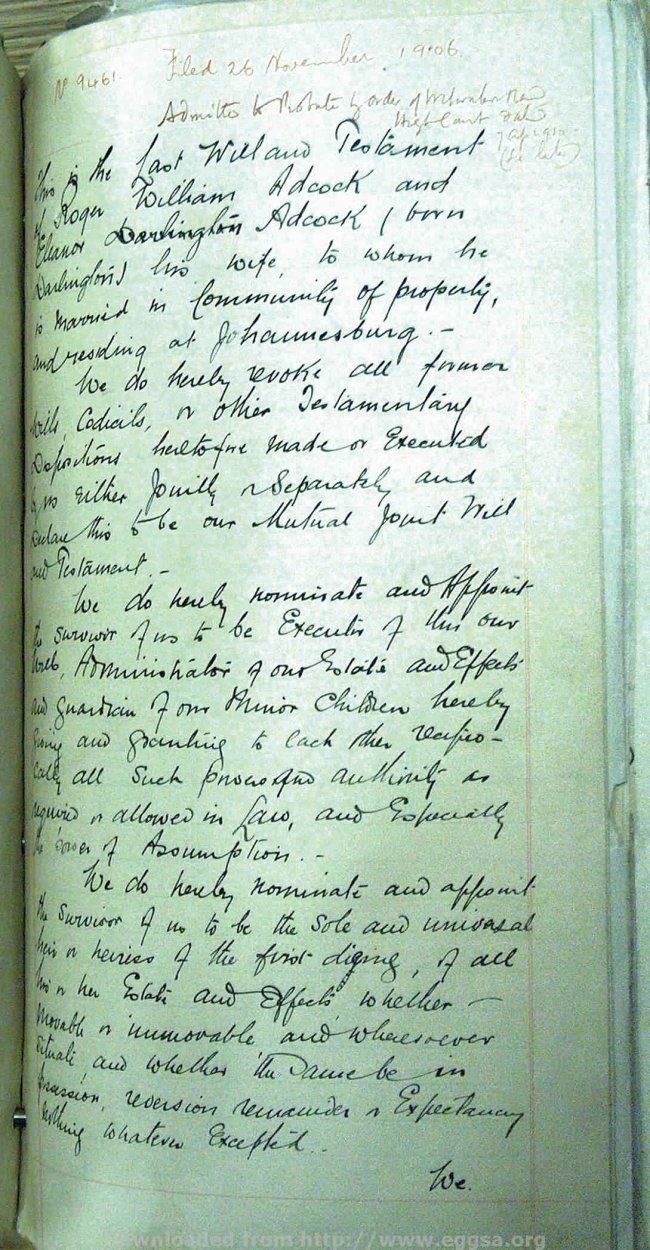 No 9461 Filed 26 November 1906
Admitted to Probate by order of Witwatersrand
High Court
This is the Last Will and Testament
of Roger William Adcock and
Eleanor Darlington Adcock (born
Darlington) his wife, to whom he
is married in Community of property,
and residing at Johannesburg. —
We do hereby revoke all former
Wills, Codicils, or other Testamentary
Dispositions heretofore made or Executed
by us either Jointly or Separately and
Declare this to be our Mutual Joint Will
and Testament. —
We do hereby nominate and Appoint
the Survivor of us to be Executor of this our
Will, Administrator of our Estate and Effects
and guardian of our Minor Children hereby
giving and granting to each other recipro-
cally all such powers and authority as
required or allowed in Law, and Especially
the power of Assumption. —
We do hereby nominate and appoint
the Survivor of us to be the Sole and universal
heir or heiress of the first dieing, of all
his or her Estate and Effects whether —
Movable or immovable and wheresoever
situate and whether the same be in
possession, reversion remainder or Expectancy
nothing whatever Excepted.
We.
downloaded from http://www.eggsa.org